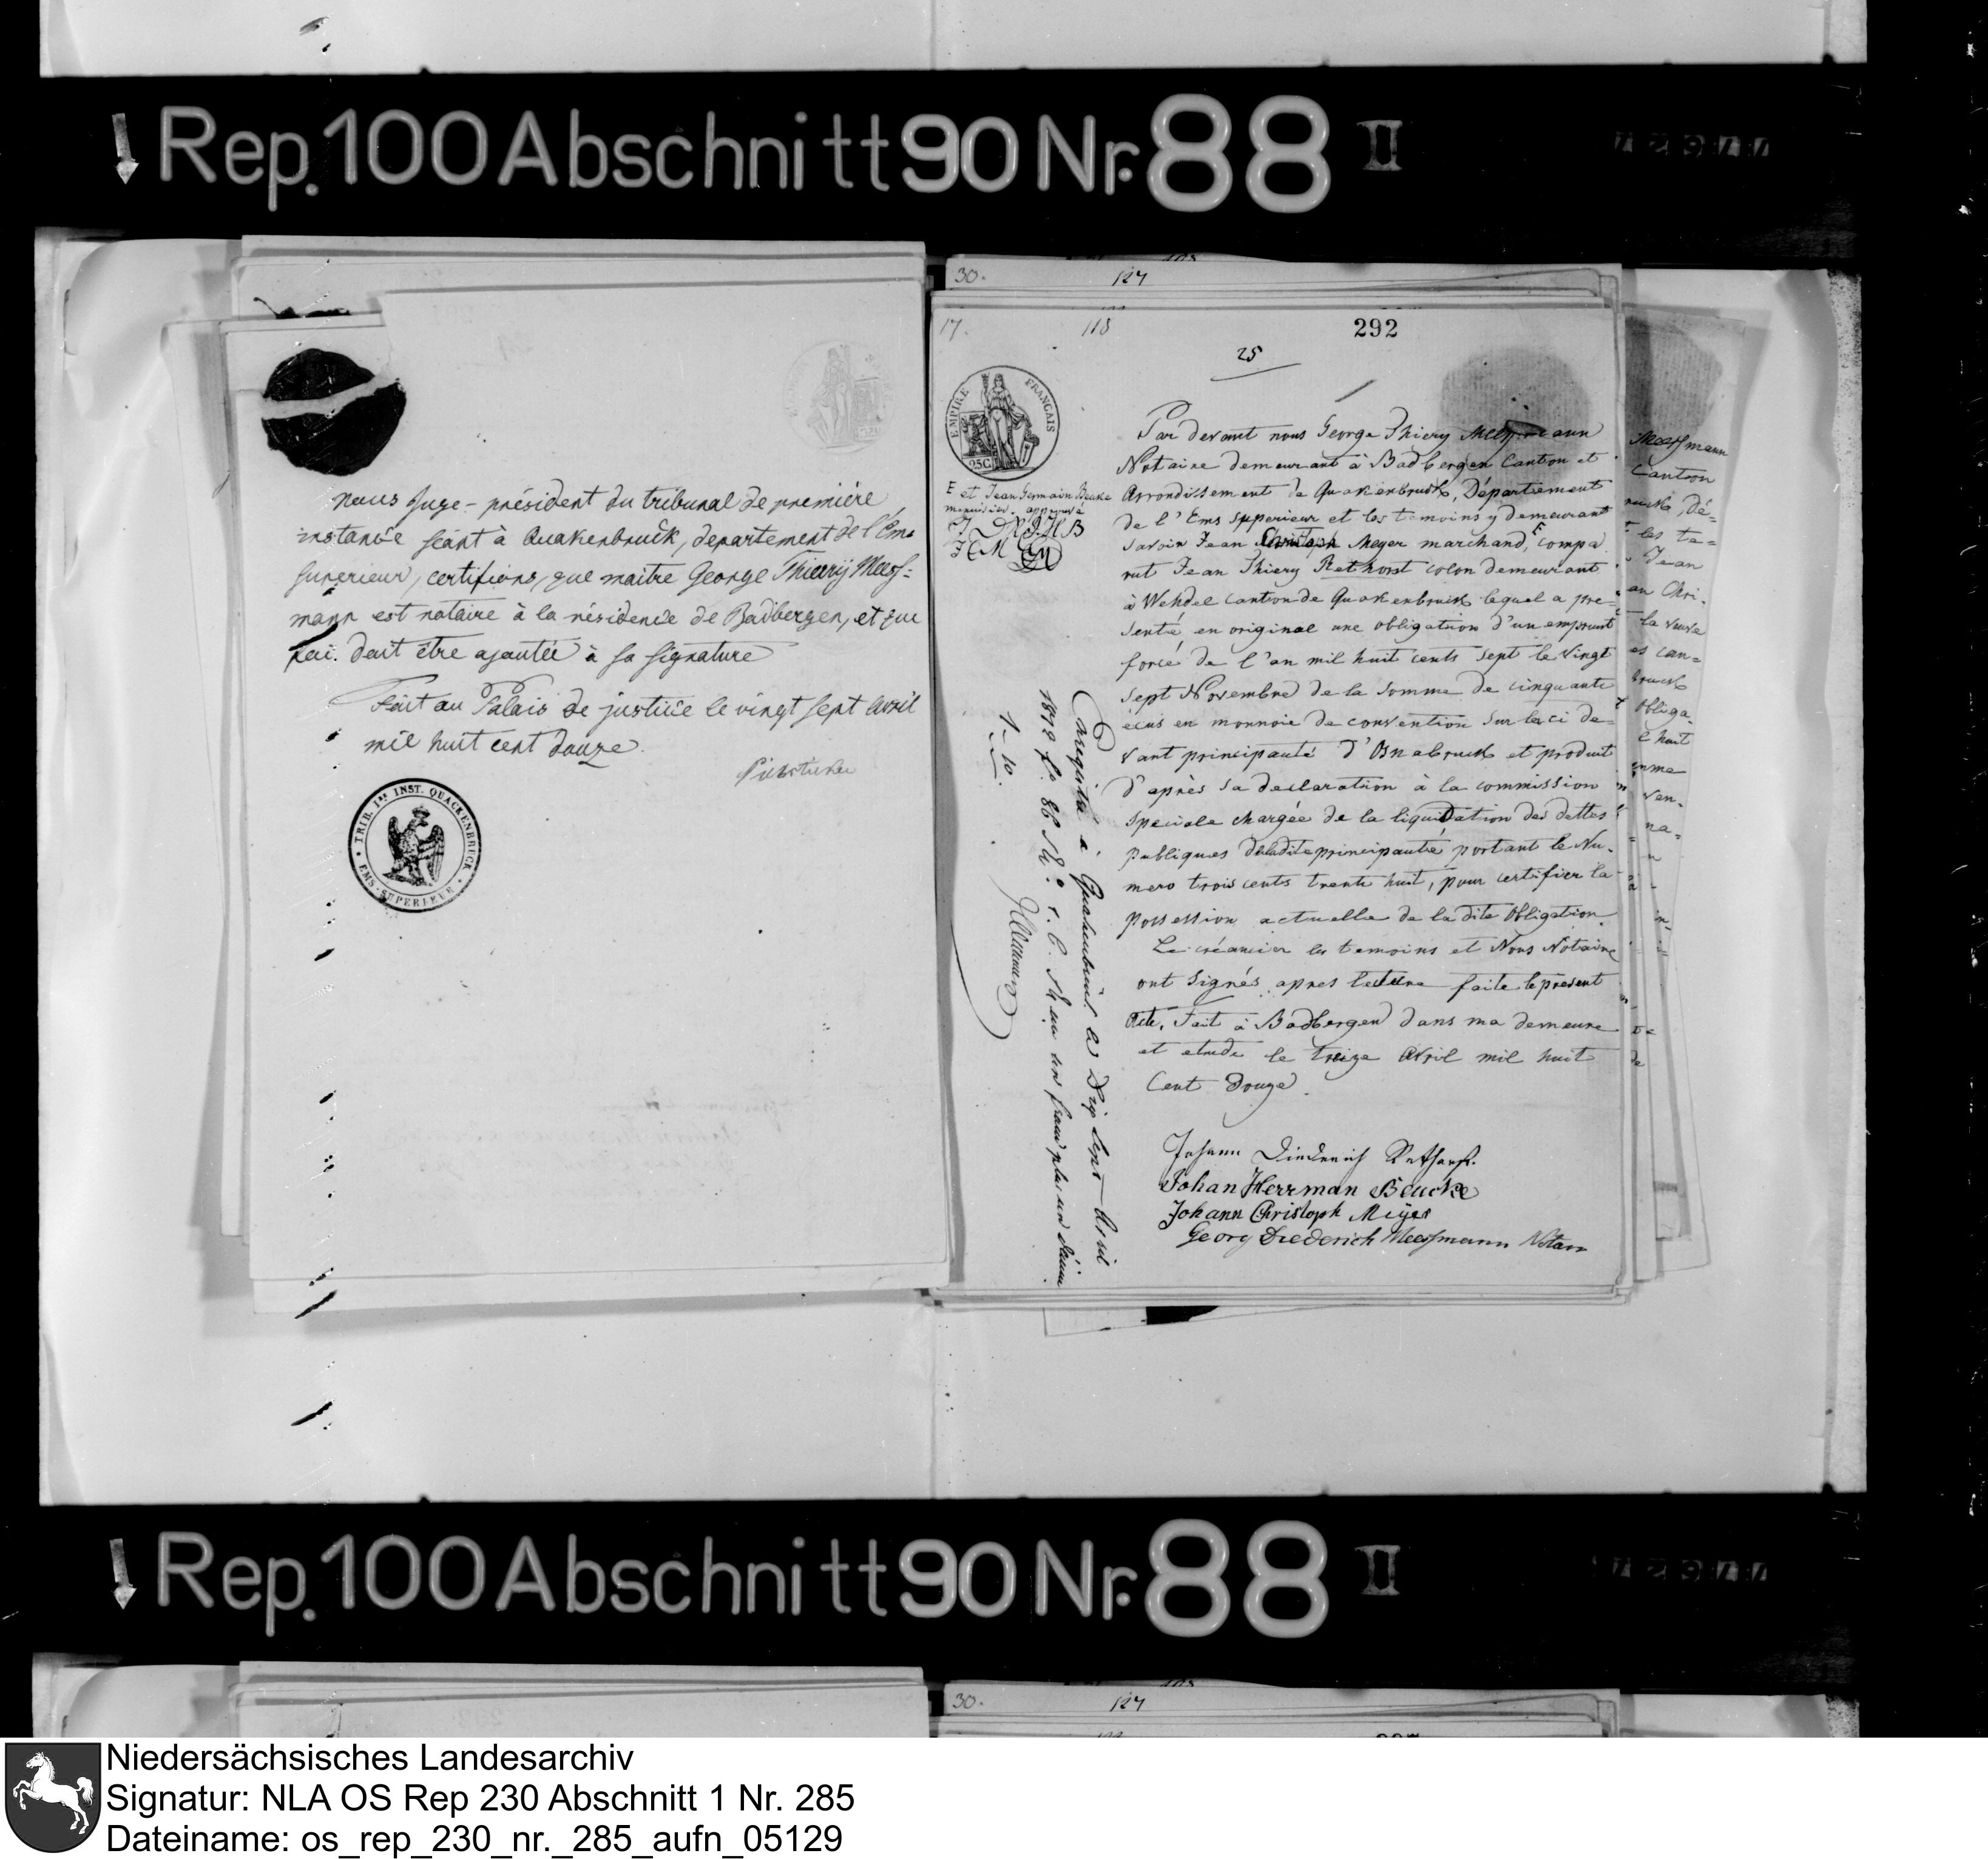 Rep. 100 Abschnitt 90 Nr. 88 II
Nous Juge-président du tribunal de première
instance séant à Quakenbruck, département de l'Ems
Superieur, certifions, que maitre George Thierrij Meess=
mann est notaire à la résidence de Badbergen, et que
foi doit être ajoutée à sa signature
Fait au Palais de justice le vingt sept avril
mil huit cent douze.
TRIB. Ire INST. QUACKENBRUCK
EMS-SUPERIEUR
30. 127
17. 118 292
25
EMPIRE FRANÇAIS
25C
F et Jean Germain Beuke
menuisier. approuvé
J. D. R. J. H B
J C M GM
Par devant nous George Thiery Meessmann
Notaire demeurant à Badbergen Canton et
Arrondissement de Quakenbruck, Département
de l'Ems Superieur et les temoins y demeurant
savoir Jean Christoph Meyer marchand, F compa
rut Jean Thiery Rethorst colon demeurant
à Wehdel canton de Quakenbruck lequel a pre=
senté en original une obligation d'un emprunt
forcé de l'an mil huit cents sept le vingt
sept Novembre de la somme de cinquante
écus en monnoie de convention sur la ci de=
vant principauté d'Osnabruck et produit
d'après sa declaration à la commission
speciale chargée de la liquidation des dettes
publiques de ladite principauté, portant le Nu-
mero trois cents trente huit, pour certifier la
possession actuelle de la dite Obligation.
Le créancier les temoins et Nous Notaire
ont signés apres lecture faite le present
Acte. Fait à Badbergen dans ma demeure
et etude le treize Avril mil huit
Cent douze.
Johann Diederich Rethorst.
Johan Herrman Beucke
Johann Christoph Meijer
Georg Diederich Meessmann Notar
Enregistré à Quakenbruck le Dix sept Avril
1812 f. 86 r. C. un franc plus un décime
1-10.
Meessmann
Canton
bruck, Dé=
les te=
Jean
an Chri-
la veuve
es can=
bruck
obliga-
e huit
omme
ven-
na=
de
Rep. 100 Abschnitt 90 Nr. 88 II
30. 127
Niedersächsisches Landesarchiv
Signatur: NLA OS Rep 230 Abschnitt 1 Nr. 285
Dateiname: os_rep_230_nr._285_aufn_05129